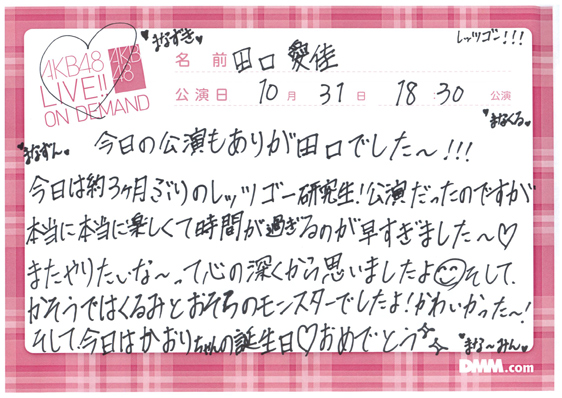 レッツゴン!!!
まなずき
AKB48
LIVE!!
ON DEMAND
AKB
48
名前 田口 愛佳
公演日 10月 31日 18:30 公演
まなくる
まなずん
今日の公演もありが田口でした〜!!!
今日は約3ヶ月ぶりのレッツゴー研究生!公演だったのですが
本当に本当に楽しくて時間が過ぎるのが早すぎました〜♡
またやりたいな〜って心の深くから思いましたよ😊そして、
かそうではくるみとおそろのモンスターでしたよ!かわいかった〜!
そして、今日はかおりちゃんの誕生日♡おめでとう
まな〜みん
DMM.com